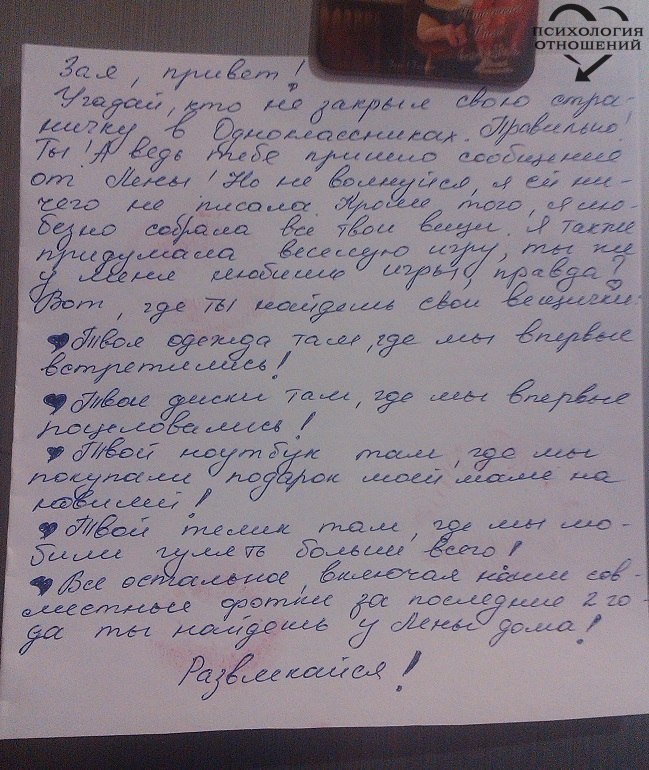 ПСИХОЛОГИЯ
ОТНОШЕНИЙ
Зая, привет!
Угадай, кто не закрыл свою стра-
ничку в Одноклассниках. Правильно!
Ты! А ведь тебе пришло сообщение
от Лены! Но не волнуйся, я ей ни-
чего не писала. Кроме того, я лю-
безно собрала все твои вещи. Я также
придумала веселую игру, ты же
у меня любишь игры, правда?
Вот, где ты найдешь свои вещички:
Твоя одежда там, где мы впервые
встретились!
Твои диски там, где мы впервые
поцеловались!
Твой ноутбук там, где мы
покупали подарок моей маме на
юбилей!
Твой телик там, где мы лю-
били гулять больше всего!
Все остальное, включая наши сов-
местные фотки за последние 2 го-
да ты найдешь у Лены дома!
Развлекайся!